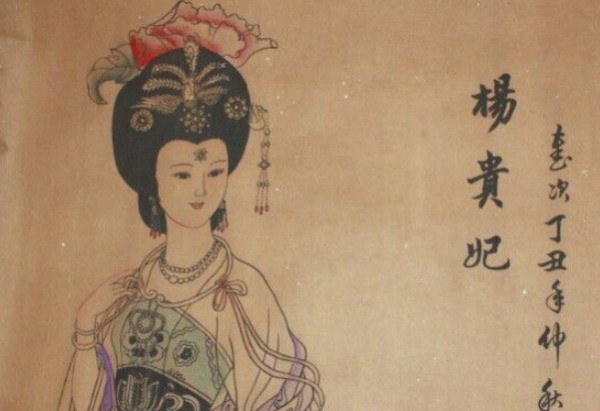 楊貴妃
歲次丁丑年仲秋